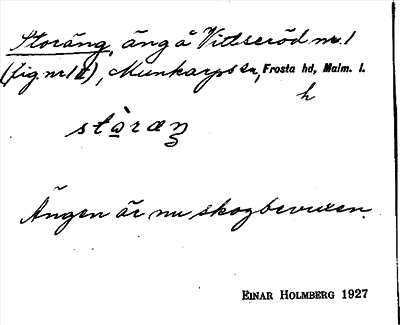 Storäng, äng å Vittseröd nr. 1
(fig nr 1 ), Munkarps sn, Frosta hd, Malm. l.
h
Ängen är nu skogbevuxen.
EINAR HOLMBERG 1927